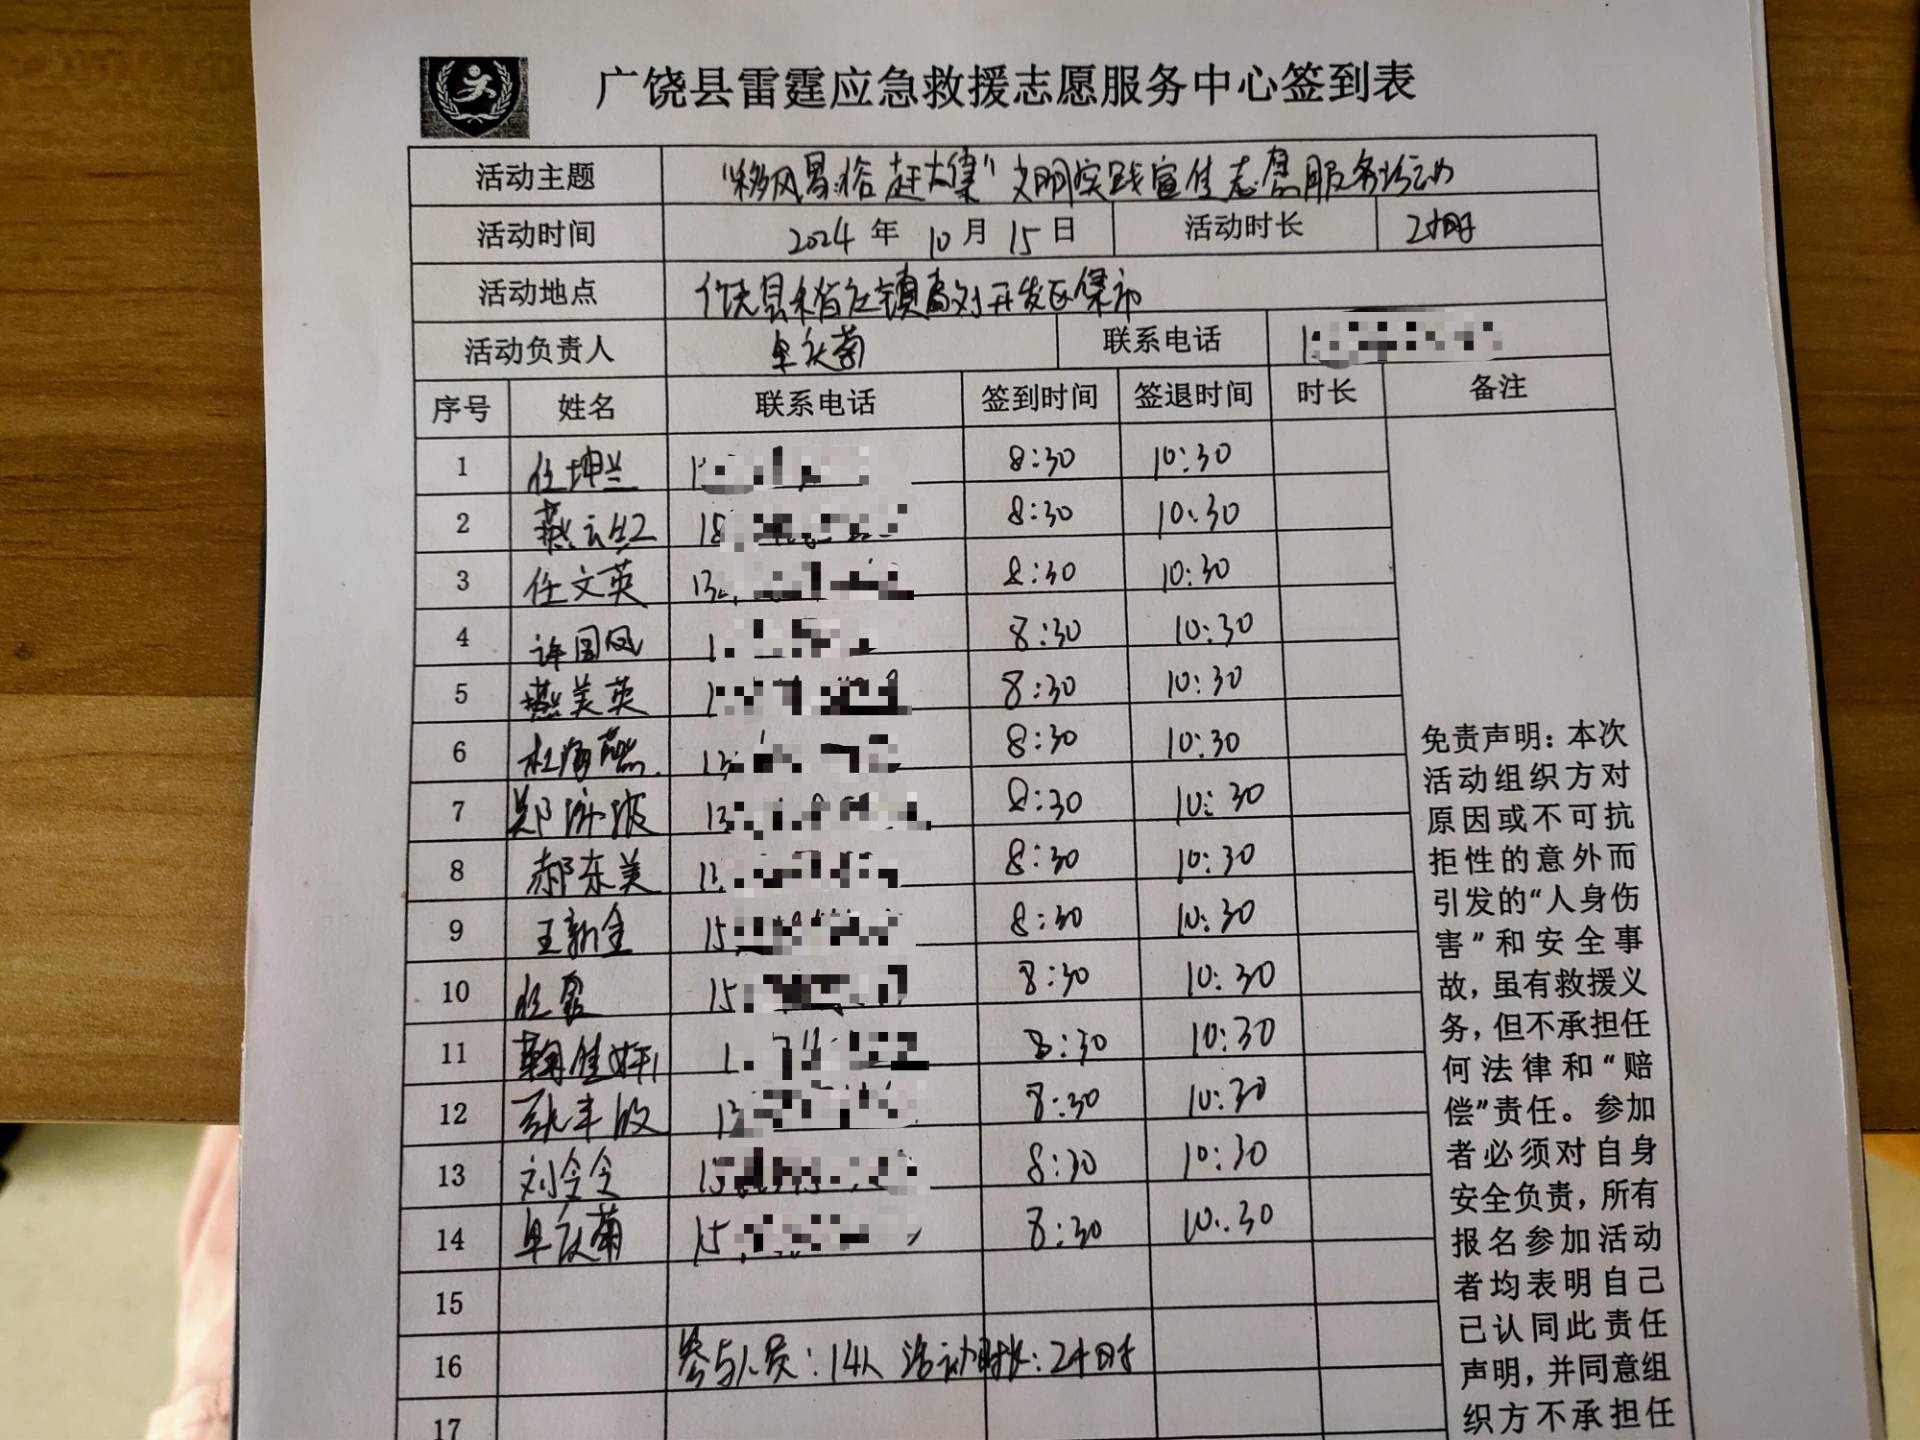 广饶县雷霆应急救援志愿服务中心签到表
活动主题 "移风易俗赶大集"文明实践宣传志愿服务活动
活动时间 2024年10月15日 活动时长 2小时
活动地点 广饶县稻庄镇高刘开发区集市
活动负责人 联系电话 1
序号 姓名 联系电话 签到时间 签退时间 时长 备注
1 任坤兰 1 8:30 10:30
2 燕云红 18 8:30 10:30
3 任文英 13 8:30 10:30
4 许国凤 1 8:30 10:30
5 燕美英 1 8:30 10:30
6 杜海燕 13 8:30 10:30
7 郑 波 13 8:30 10:30
8 郝东美 13 8:30 10:30
9 王新金 15 8:30 10:30
10 15 8:30 10:30
11 1 8:30 10:30
12 13 8:30 10:30
13 刘令令 15 8:30 10:30
14 15 8:30 10:30
15
16 参与人员:14人 活动时长:2小时
17
免责声明：本次
活动组织方对
原因或不可抗
拒性的意外而
引发的“人身伤
害”和安全事
故，虽有救援义
务，但不承担任
何法律和“赔
偿”责任。参加
者必须对自身
安全负责，所有
报名参加活动
者均表明自己
已认同此责任
声明，并同意组
织方不承担任